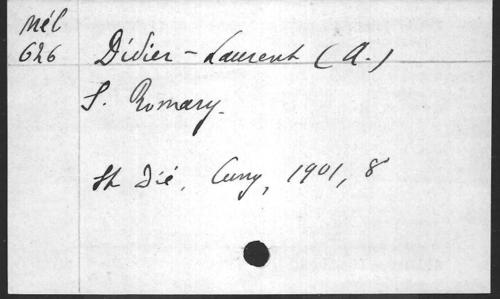 Mél
626
Didier-Laurent (A.)
S. Romary.
St Dié, Cuny, 1901, 8°